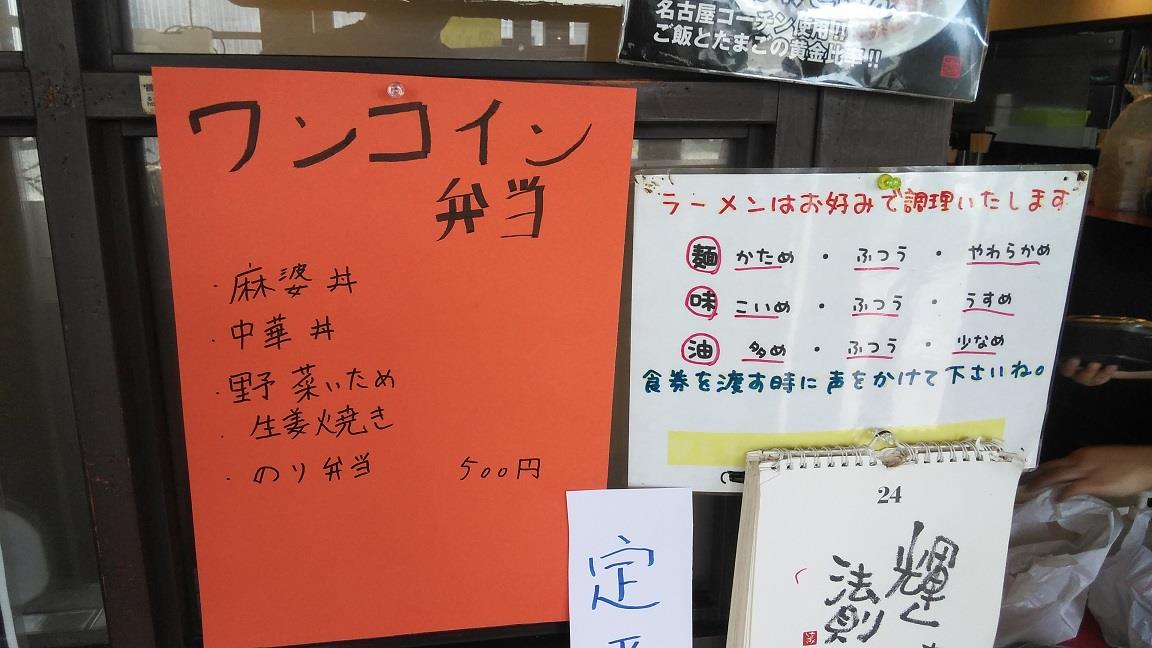 名古屋コーチン使用!!
ご飯とたまごの黄金比率!!
ワンコイン
弁当
・麻婆丼
・中華丼
・野菜いため
・生姜焼き
・のり弁当 500円
ラーメンはお好みで調理いたします
麺 かため ・ ふつう ・ やわらかめ
味 こいめ ・ ふつう ・ うすめ
油 多め ・ ふつう ・ 少なめ
食券を渡す時に声をかけて下さいね。
定
24
輝く
法則